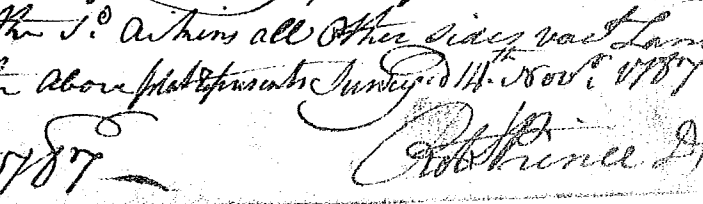 the Sd. Aikins all Other sides vact Lan
above plat represents Surveyed 14th Novr. 1787
1787 Robt Prince D